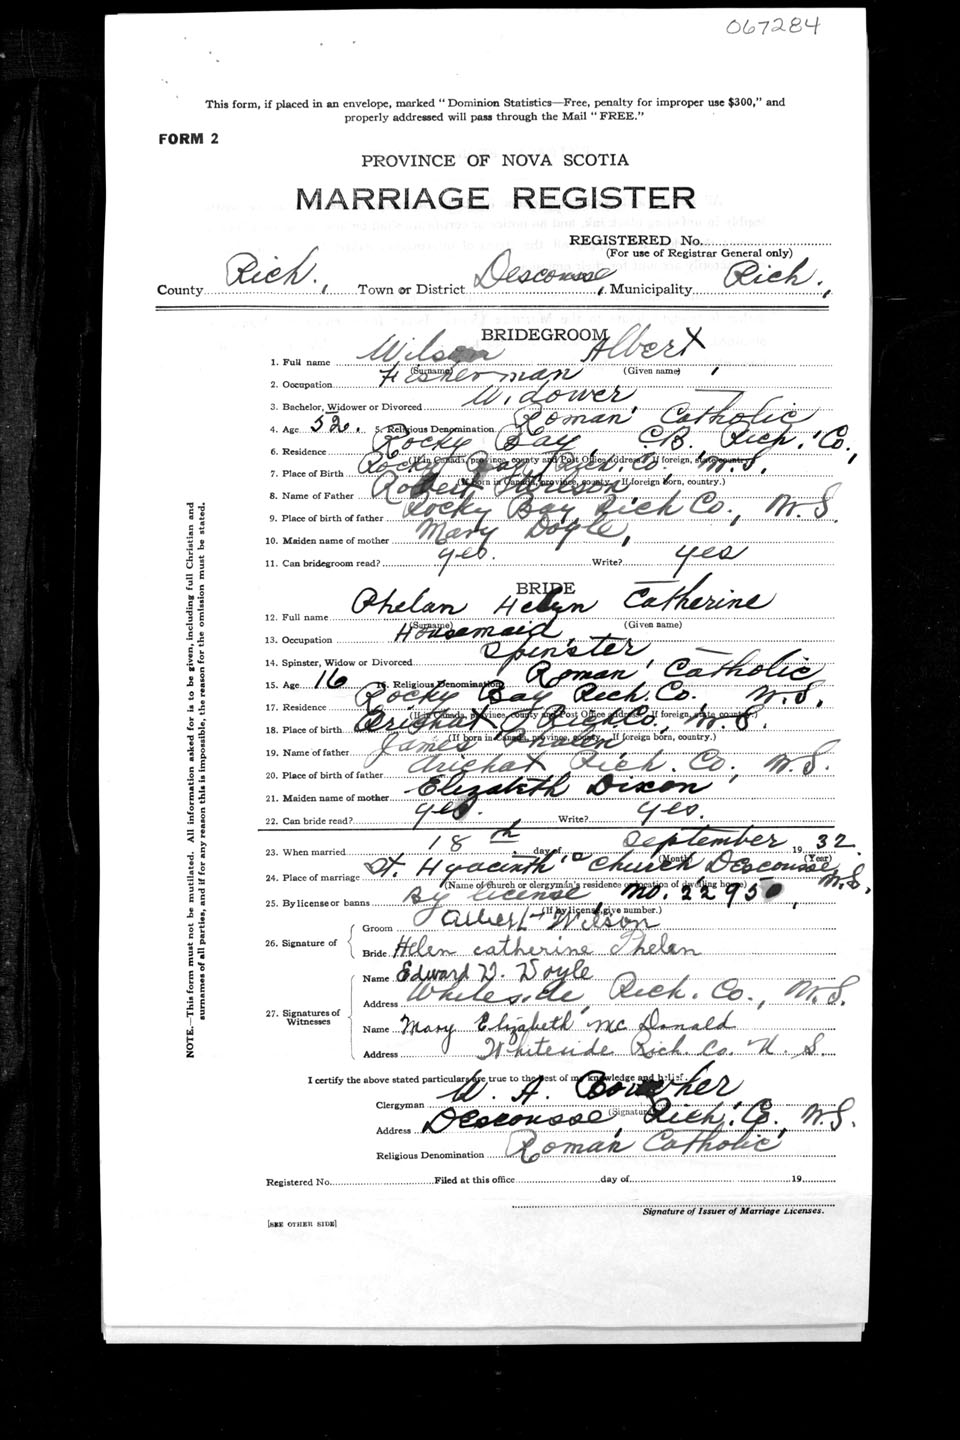 067284
This form, if placed in an envelope, marked "Dominion Statistics—Free, penalty for improper use $300," and
properly addressed will pass through the Mail "FREE."
FORM 2
PROVINCE OF NOVA SCOTIA
MARRIAGE REGISTER
REGISTERED No.
(For use of Registrar General only)
County Rich. , Town or District Descousse , Municipality Rich. ,
BRIDEGROOM
1. Full name Wilson Albert ,
(Surname) (Given name)
2. Occupation Fisherman
3. Bachelor, Widower or Divorced Widower,
4. Age 52. 5. Religious Denomination Roman Catholic
6. Residence Rocky Bay, C.B. Rich. Co.,
(If in Canada, province, county and Post Office address. If foreign, state country.)
7. Place of Birth Rocky Bay Rich. Co. N.S.
(If born in Canada, province, county. If foreign born, country.)
8. Name of Father Robert Wilson
9. Place of birth of father Rocky Bay Rich Co., N.S.
10. Maiden name of mother Mary Doyle,
11. Can bridegroom read? yes. Write? yes
BRIDE
12. Full name Phelan Helen Catherine
(Surname) (Given name)
13. Occupation Housemaid,
14. Spinster, Widow or Divorced Spinster,
15. Age 16 16. Religious Denomination Roman Catholic
17. Residence Rocky Bay Rich. Co. N.S.
(If in Canada, province, county and Post Office address. If foreign, state country.)
18. Place of birth Arichat, Rich. Co., N.S.
(If born in Canada, province, county. If foreign born, country.)
19. Name of father James Phelan,
20. Place of birth of father Arichat Rich. Co., N.S.
21. Maiden name of mother Elizabeth Dixon
22. Can bride read? yes. Write? yes.
23. When married 18th day of September 1932.
(Month) (Year)
24. Place of marriage St. Hyacinth's Church, Descousse, N.S.
(Name of church or clergyman's residence or location of dwelling house)
25. By license or banns By license no. 22950,
(If by license, give number.)
26. Signature of
Groom Albert Wilson
Bride Helen Catherine Phelan
27. Signatures of Witnesses
Name Edward V. Doyle
Address Whiteside, Rich. Co., N.S.
Name Mary Elizabeth McDonald
Address Whiteside Rich. Co. N.S.
I certify the above stated particulars are true to the best of my knowledge and belief.
Clergyman W. A.
(Signature)
Address Descousse, Rich. Co., N.S.
Religious Denomination Roman Catholic
Registered No. Filed at this office day of 19
Signature of Issuer of Marriage Licenses.
[SEE OTHER SIDE]
NOTE.—This form must not be mutilated. All information asked for is to be given, including full Christian and
surnames of all parties, and if for any reason this is impossible, the reason for the omission must be stated.